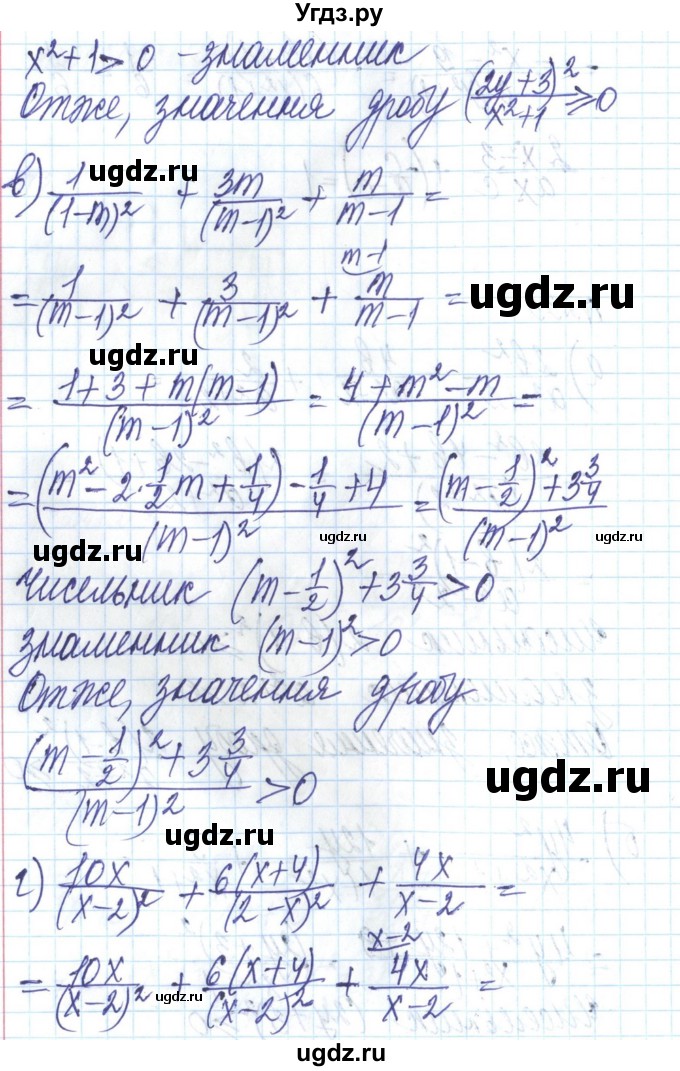 Угдз.ру
x² + 1 > 0 - знаменник
Отже, значення дробу (2y + 3)²/x² + 1 ≥ 0
ugdz.ru
в) 1/(1-m)² + 3m/(m-1)² + m/m-1 =
ugdz.ru
m-1
= 1/(m-1)² + 3/(m-1)² + m/m-1 =
ugdz.ru
ugdz.ru
= 1 + 3 + m(m-1)/(m-1)² = 4 + m² - m/(m-1)² =
= (m² - 2·1/2m + 1/4) - 1/4 + 4/(m-1)² = (m - 1/2)² + 3 3/4/(m-1)²
ugdz.ru
ugdz.ru
ugdz.ru
Чисельник (m - 1/2)² + 3 3/4 > 0
знаменник (m-1)² > 0
Отже, значення дробу
(m - 1/2)² + 3 3/4/(m-1)² > 0
ugdz.ru
ugdz.ru
г) 10x/(x-2)² + 6(x+4)/(2-x)² + 4x/x-2 =
x-2
= 10x/(x-2)² + 6(x+4)/(x-2)² + 4x/x-2 =
ugdz.ru
ugdz.ru
ugdz.ru